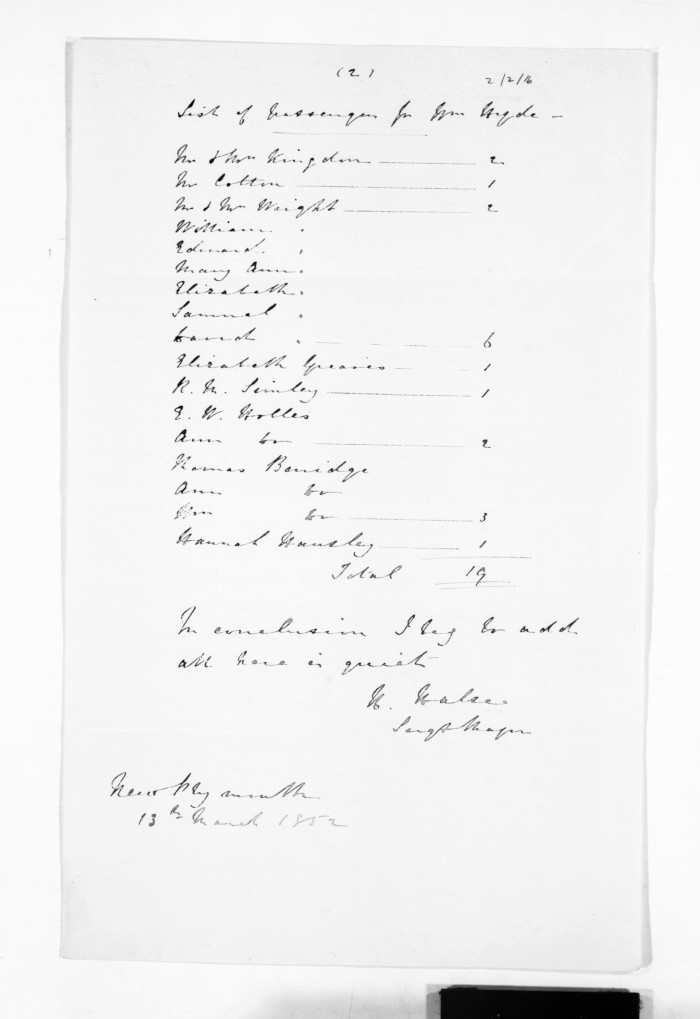 (2)
2/2/16
List of Passengers pr Wm Hyde —
Mr & Mrs Kingdon — 2
Mr Cotton — 1
Mr & Mrs Wright — 2
William "
Edward "
Mary Ann "
Elizabeth "
Samuel "
David " — 6
Elizabeth Greaves — 1
R. M. Simley — 1
E. W. Holles
Ann Do — 2
Thomas Berridge
Ann Do
Wm Do — 3
Hannah Hansley — 1
Total 19
In conclusion I beg to add
all here is quiet
H. Halse
Sergt Major
New Plymouth
13th March 1852